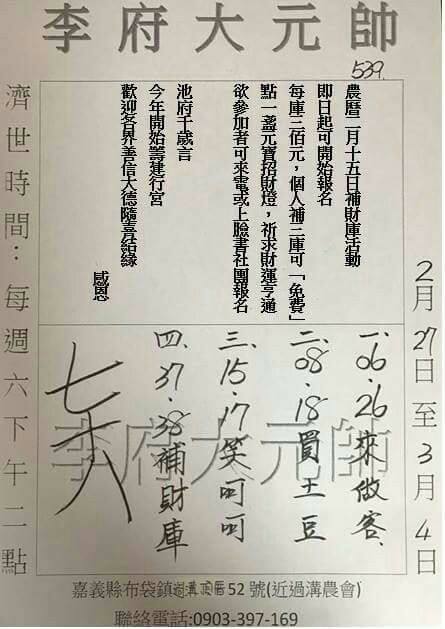 李府大元帥
539.
農曆二月十五日補財庫活動
即日起可開始報名
每庫三佰元，個人補三庫可「免費」
點一盞元寶招財燈，祈求財運亨通
欲參加者可來電或上臉書社團報名
池府千歲言
今年開始籌建行宮
歡迎各界善信大德隨喜結緣
感恩
2月27日至3月4日
一、06.26來做客、
二、08.18買土豆
三、15.17笑呵呵
四、37.38補財庫
李府大元帥
濟世時間：每週六下午二點
嘉義縣布袋鎮過溝 52 號(近過溝農會)
聯絡電話:0903-397-169